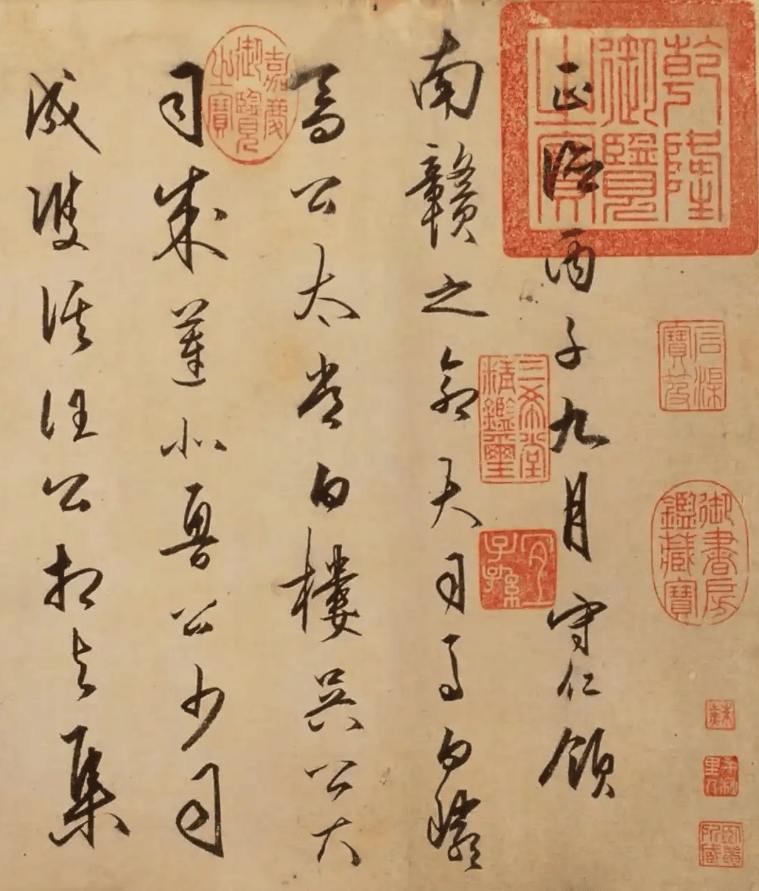 石渠寶笈
御書房鑑藏寶
乾隆御覽之寶
正德丙子九月守仁領
三希堂精鑑璽
宜子孫
南贛之命大司馬白巖
喬公太常白樓吳公大
嘉慶御覽之寶
司成蓮北魯公少司
成雙溪汪公相与集